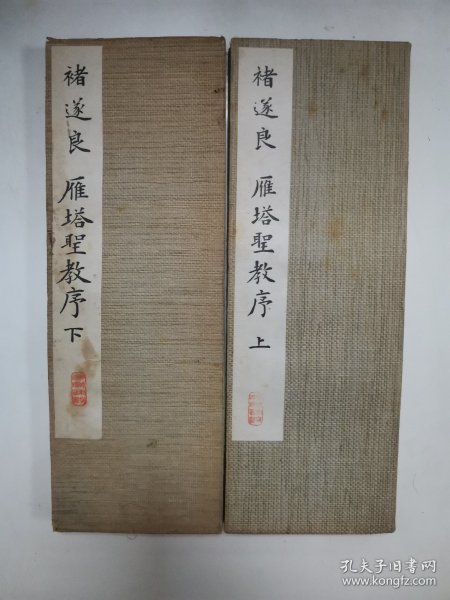 褚遂良 雁塔聖教序 上
褚遂良 雁塔聖教序 下
孔夫子旧书网
www.kongfz.com